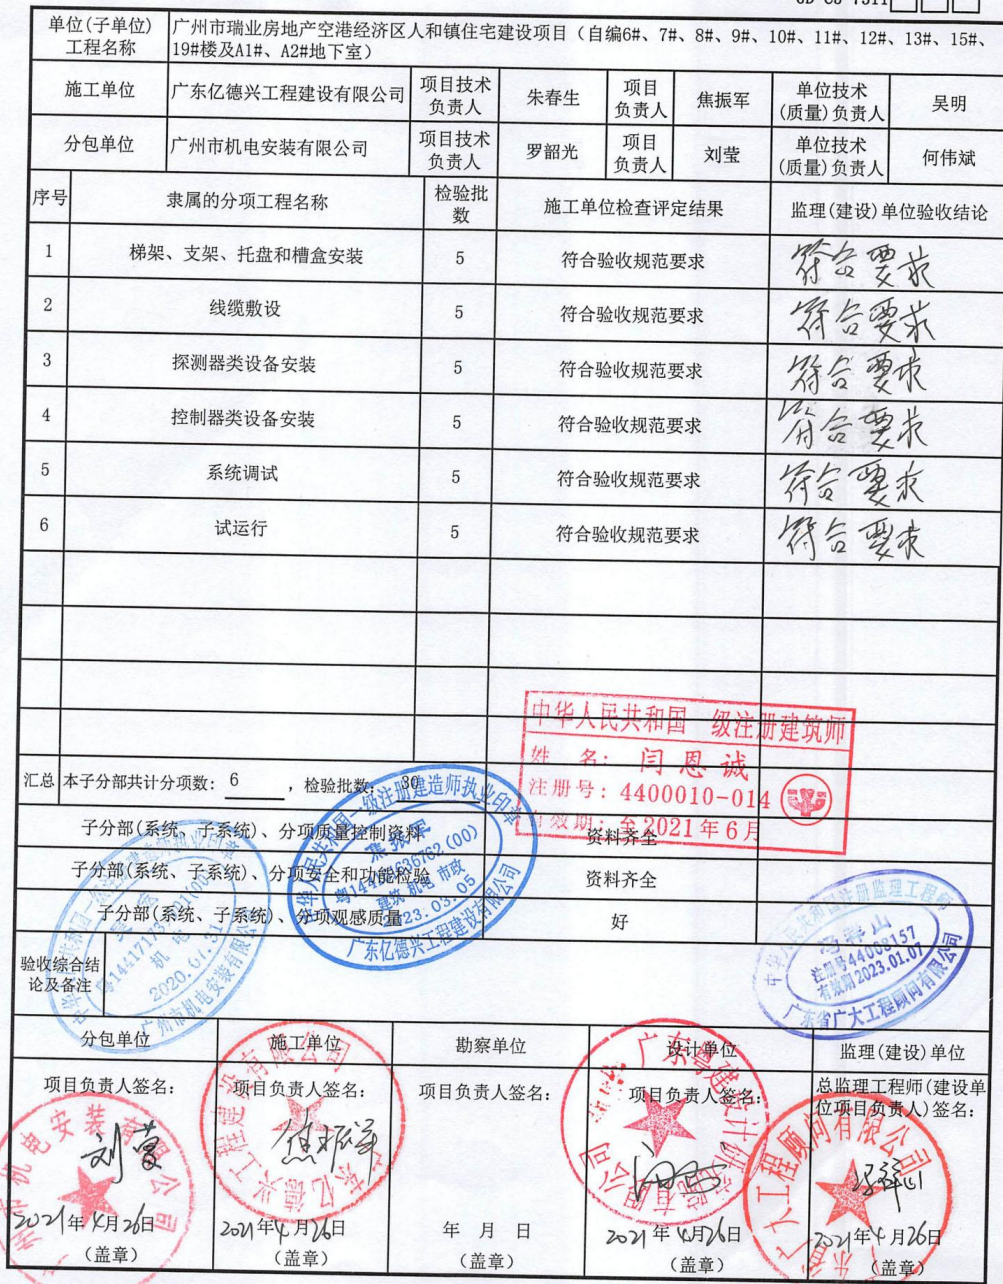 GD-C5-7311
单位(子单位)工程名称 广州市瑞业房地产空港经济区人和镇住宅建设项目（自编6#、7#、8#、9#、10#、11#、12#、13#、15#、
19#楼及A1#、A2#地下室）
施工单位 广东亿德兴工程建设有限公司 项目技术负责人 朱春生 项目负责人 焦振军 单位技术(质量)负责人 吴明
分包单位 广州市机电安装有限公司 项目技术负责人 罗韶光 项目负责人 刘莹 单位技术(质量)负责人 何伟斌
序号 隶属的分项工程名称 检验批数 施工单位检查评定结果 监理(建设)单位验收结论
1 梯架、支架、托盘和槽盒安装 5 符合验收规范要求 符合要求
2 线缆敷设 5 符合验收规范要求 符合要求
3 探测器类设备安装 5 符合验收规范要求 符合要求
4 控制器类设备安装 5 符合验收规范要求 符合要求
5 系统调试 5 符合验收规范要求 符合要求
6 试运行 5 符合验收规范要求 符合要求
中华人民共和国一级注册建筑师
姓 名：闫恩诚
注册号：4400010-014
有效期：至2021年6月
汇总 本子分部共计分项数： 6 ，检验批数： 30
子分部(系统、子系统)、分项质量控制资料 资料齐全
子分部(系统、子系统)、分项安全和功能检验 资料齐全
子分部(系统、子系统)、分项观感质量 好
中华人民共和国一级注册建造师执业印章
焦振军
(00)
建筑 机电 市政
2023.03.05
广东亿德兴工程建设有限公司
机电
2020.07.31
广州市机电安装有限公司
中华人民共和国注册监理工程师
冯祥山
注册号44008157
有效期2023.01.07
广东省广大工程顾问有限公司
验收综合结论及备注
分包单位 施工单位 勘察单位 设计单位 监理(建设)单位
项目负责人签名： 项目负责人签名： 项目负责人签名： 项目负责人签名： 总监理工程师(建设单位项目负责人)签名：
刘莹 焦振军
2021年4月26日 2021年4月26日 年 月 日 2021年4月26日 2021年4月26日
(盖章) (盖章) (盖章) (盖章) (盖章)